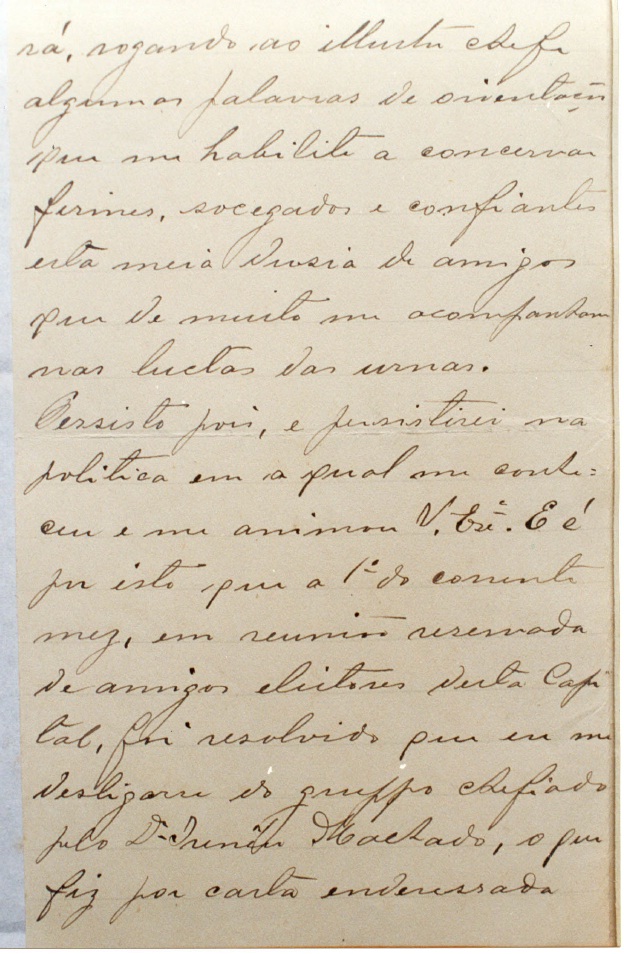 rá, rogando ao illustre chefe
algumas palavras de orientação
que me habilite a concervar
firmes, socegados e confiantes
esta meia dusia de amigos
que de muito me acompanham
nas luctas das urnas.
Persisto pois, e persistirei na
politica em a qual me conhe-
ceu e me animou V. Exª. E é
por isto que a 1º do corrente
mez, em reunião reservada
de amigos eleitores desta Capi
tal, foi resolvido que eu me
desligasse do gruppo chefiado
pelo Dr. Irineu Machado, o que
fiz por carta enderessada